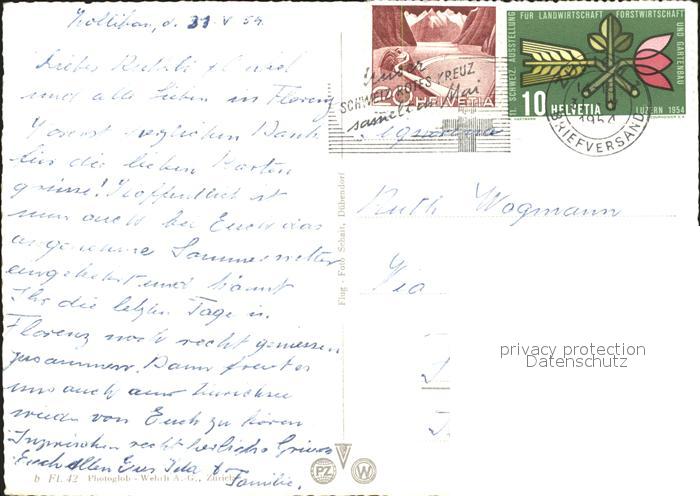 Zollikon, d. 31. V 54.
Liebes Ruthli
und alle Lieben in Florenz
Vorerst herzlichen Dank
für die lieben Karten
grüsse! Hoffentlich ist
nun auch bei Euch das
angenehme Sommerwetter
eingekehrt und könnt
Ihr die letzten Tage in
Florenz noch recht geniessen
zusammen. Dann freut es
uns auch
wieder von Euch zu hören.
Inzwischen recht herzliche Grüsse
Euch allen Eure Ida &
Familie.
b Fl. 42 Photoglob - Wehrli A. G., Zürich
Flug - Foto Schait, Dübendorf
PZ
W
SCHWEIZ. ROTES KREUZ
sammelt im Mai
HELVETIA
11. SCHWEIZ. AUSSTELLUNG FÜR LANDWIRTSCHAFT FORSTWIRTSCHAFT UND GARTENBAU
10 HELVETIA LUZERN 1954
1954
BRIEFVERSAND
Signorina
Ruth Wogmann
Via
privacy protection
Datenschutz